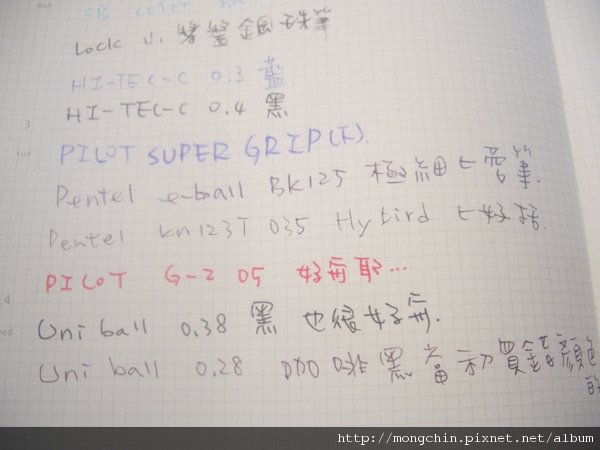 OB color
Lock 小 螃蟹鋼珠筆
HI-TEC-C 0.3 藍
HI-TEC-C 0.4 黑
PILOT SUPER GRIP(F).
Pentel e-ball BK125 極細ㄜ
Pentel Kn123T 035 Hybird ㄜ好
PILOT G-2 05 好用耶...
Uni ball 0.38 黑 也很好用.
Uni ball 0.28 咖啡黑 當初買錯顏色
的
mon
3
tue
4
ed
http://mongchin.pixnet.net/album